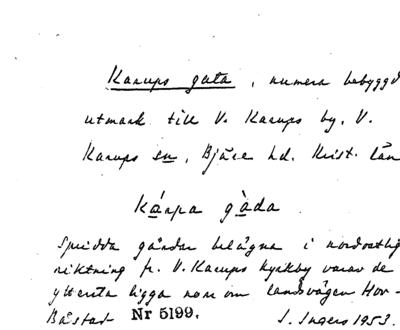 Karups gata, numera bebyggd
utmark till V. Karups by, V.
Karups sn, Bjäre hd. Krist. län
kánpa gàda
Spridda gårdar belägna i nordostlig
riktning fr. V. Karups kyrkby varav de
yttersta ligga norr om landsvägen Hov-
Båstad Nr 5199. I. Ingers 1953.